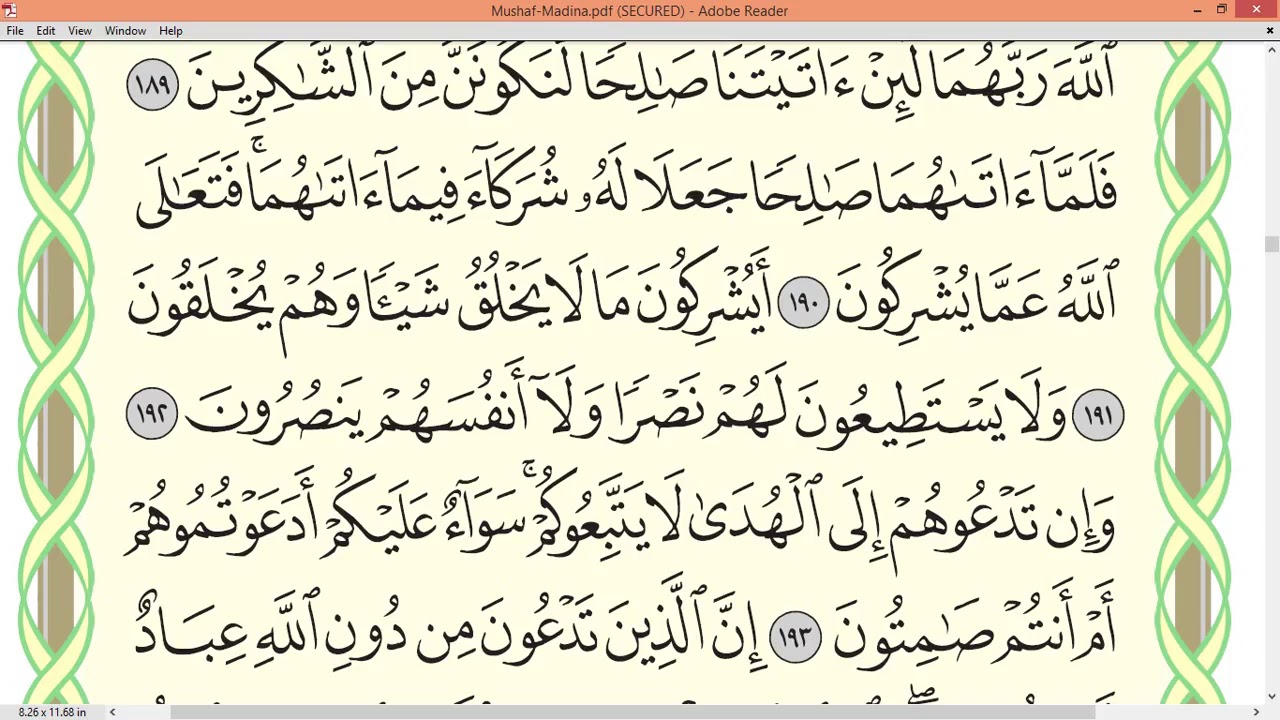 Mushaf-Madina.pdf (SECURED) - Adobe Reader
File Edit View Window Help
ٱللَّهَ رَبَّهُمَا لَئِنْ ءَاتَيْتَنَا صَٰلِحًا لَّنَكُونَنَّ مِنَ ٱلشَّٰكِرِينَ ١٨٩
فَلَمَّآ ءَاتَىٰهُمَا صَٰلِحًا جَعَلَا لَهُۥ شُرَكَآءَ فِيمَآ ءَاتَىٰهُمَاۚ فَتَعَٰلَى
ٱللَّهُ عَمَّا يُشْرِكُونَ ١٩٠ أَيُشْرِكُونَ مَا لَا يَخْلُقُ شَيْـًٔا وَهُمْ يُخْلَقُونَ
١٩١ وَلَا يَسْتَطِيعُونَ لَهُمْ نَصْرًا وَلَآ أَنفُسَهُمْ يَنصُرُونَ ١٩٢
وَإِن تَدْعُوهُمْ إِلَى ٱلْهُدَىٰ لَا يَتَّبِعُوكُمْۚ سَوَآءٌ عَلَيْكُمْ أَدَعَوْتُمُوهُمْ
أَمْ أَنتُمْ صَٰمِتُونَ ١٩٣ إِنَّ ٱلَّذِينَ تَدْعُونَ مِن دُونِ ٱللَّهِ عِبَادٌ
8.26 x 11.68 in